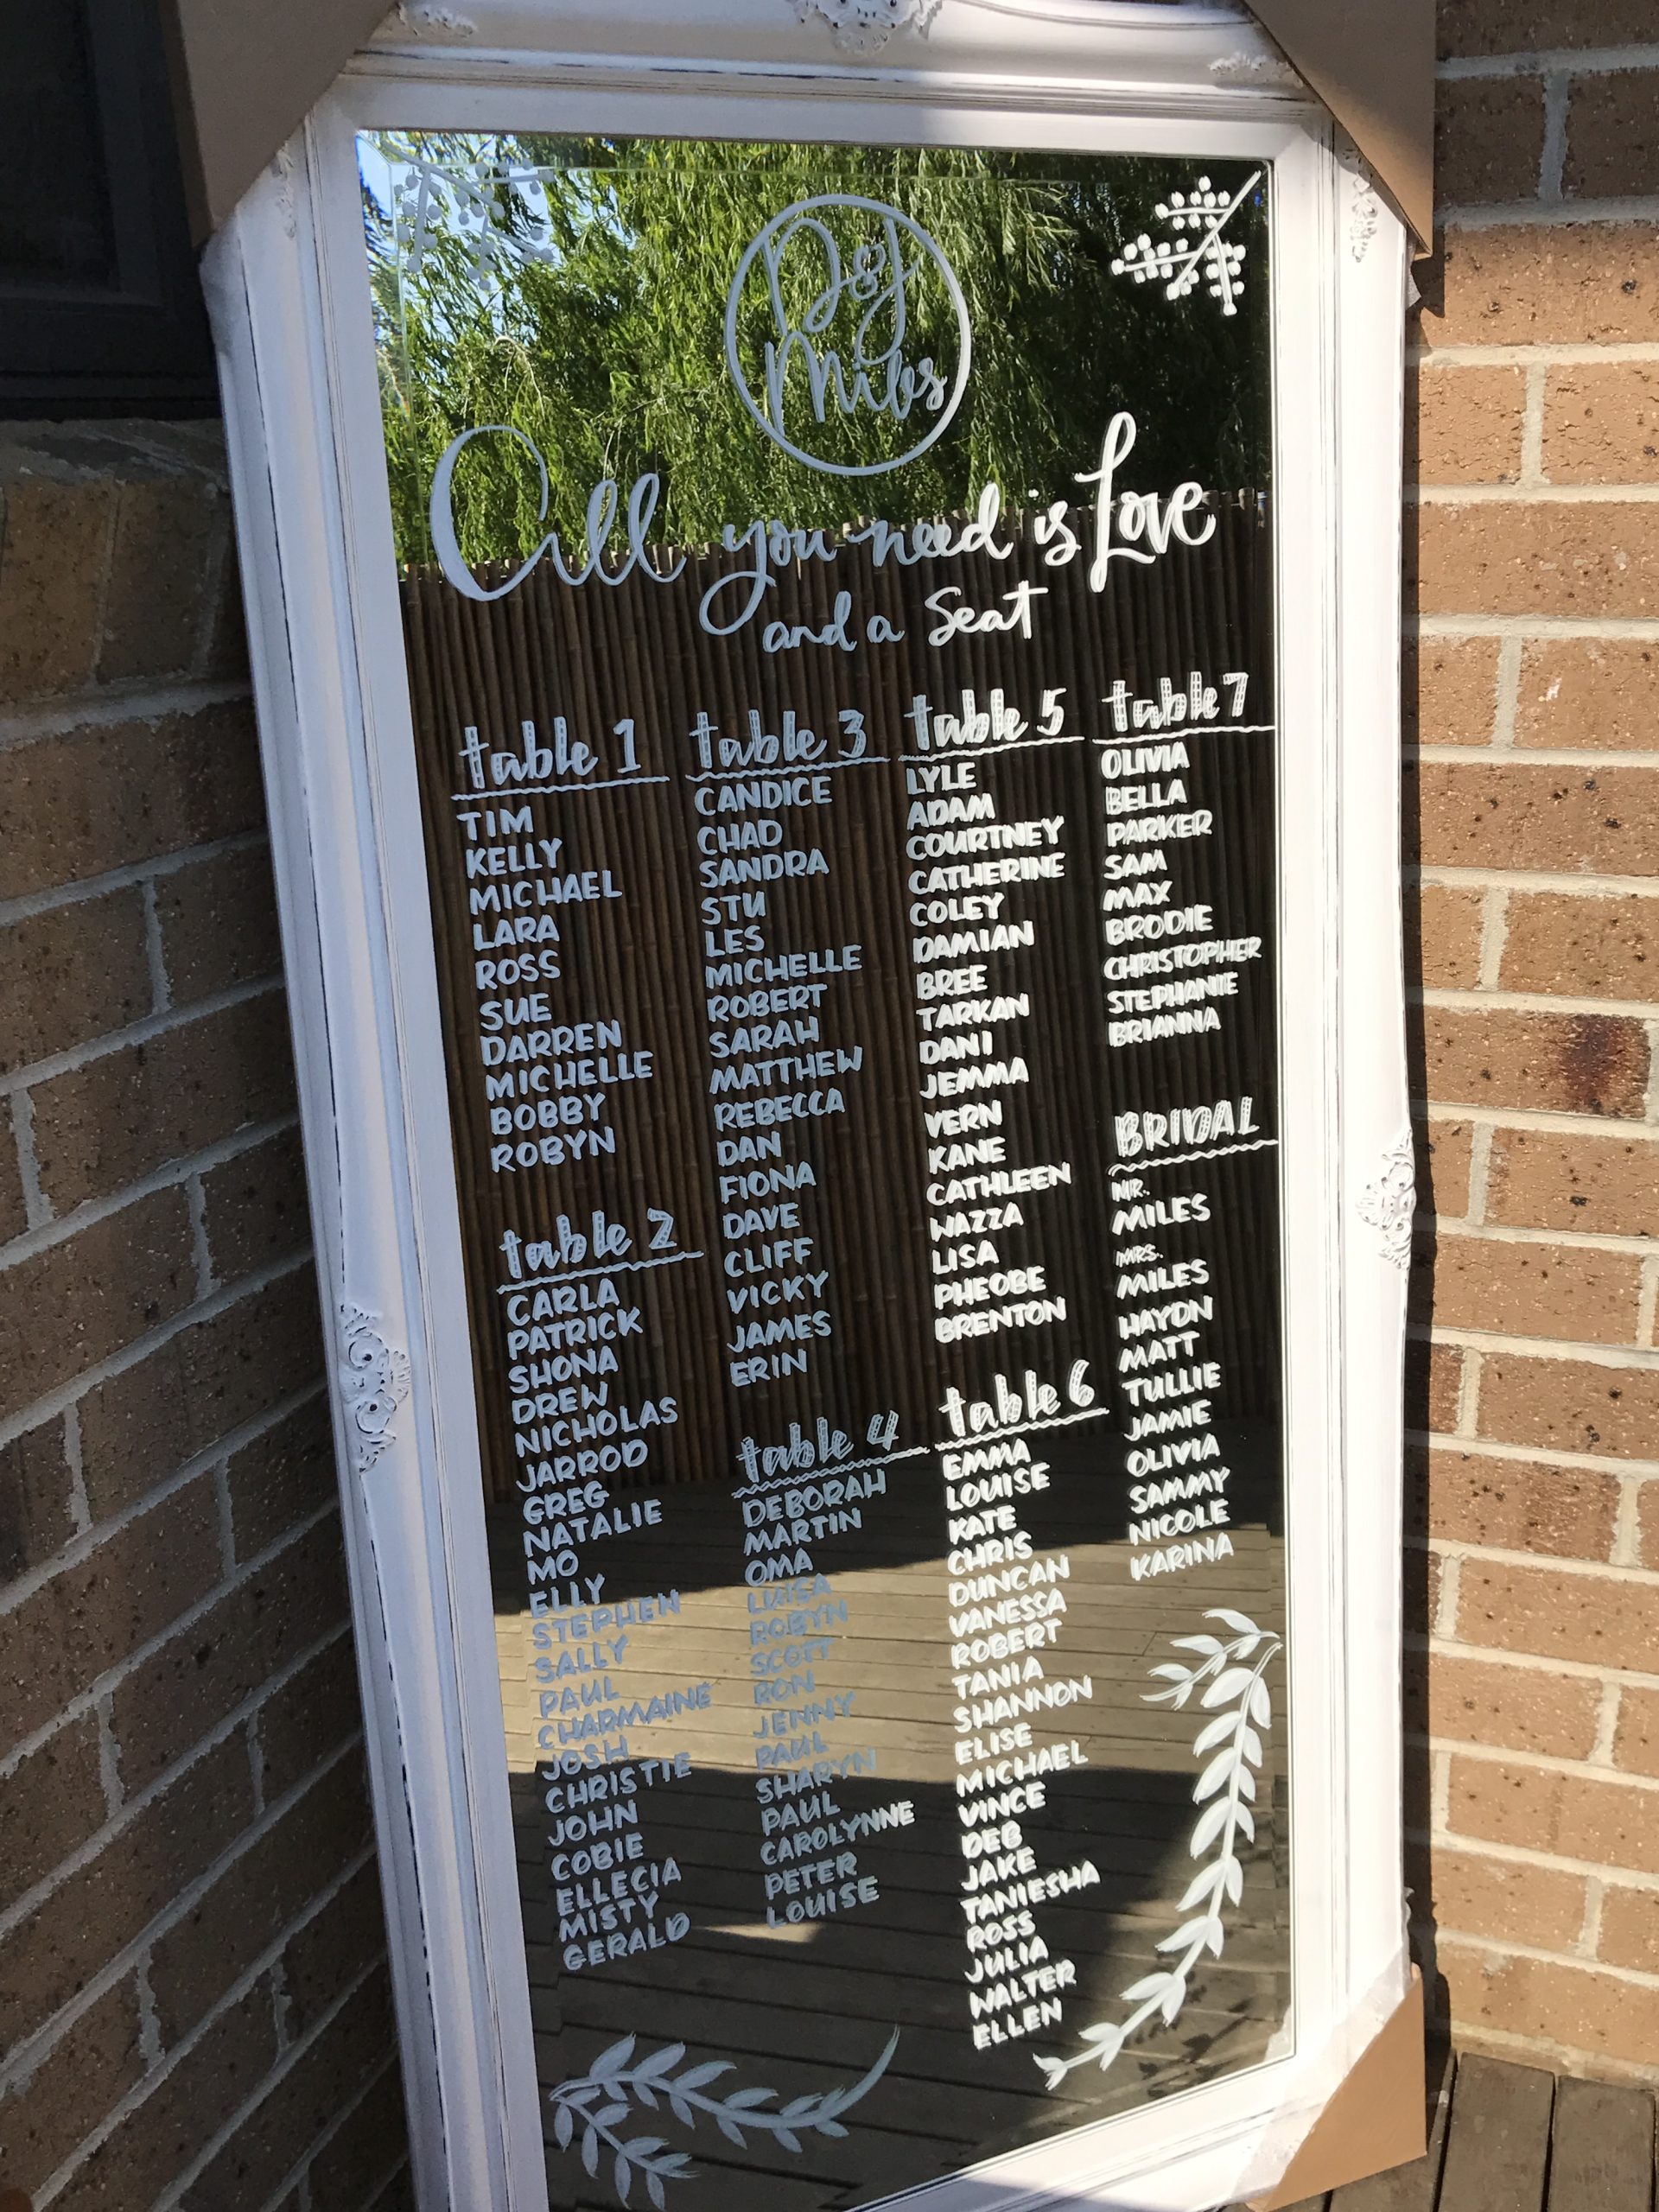 D&J
Mibs
All you need is Love
and a Seat
table 1
TIM
KELLY
MICHAEL
LARA
ROSS
SUE
DARREN
MICHELLE
BOBBY
ROBYN
table 2
CARLA
PATRICK
SHONA
DREW
NICHOLAS
JARROD
GREG
NATALIE
MO
ELLY
STEPHEN
SALLY
PAUL
CHARMAINE
JOSH
CHRISTIE
JOHN
COBIE
ELLECIA
MISTY
GERALD
table 3
CANDICE
CHAD
SANDRA
STU
LES
MICHELLE
ROBERT
SARAH
MATTHEW
REBECCA
DAN
FIONA
DAVE
CLIFF
VICKY
JAMES
ERIN
table 4
DEBORAH
MARTIN
OMA
LUISA
ROBYN
SCOTT
RON
JENNY
PAUL
SHARYN
PAUL
CAROLYNNE
PETER
LOUISE
table 5
LYLE
ADAM
COURTNEY
CATHERINE
COLEY
DAMIAN
BREE
TARKAN
DANI
JEMMA
VERN
KANE
CATHLEEN
WAZZA
LISA
PHEOBE
BRENTON
table 6
EMMA
LOUISE
KATE
CHRIS
DUNCAN
VANESSA
ROBERT
TANIA
SHANNON
ELISE
MICHAEL
VINCE
DEB
JAKE
TANIESHA
ROSS
JULIA
WALTER
ELLEN
table 7
OLIVIA
BELLA
PARKER
SAM
MAX
BRODIE
CHRISTOPHER
STEPHANIE
BRIANNA
BRIDAL
MR.
MILES
MRS.
MILES
HAYDN
MATT
TULLIE
JAMIE
OLIVIA
SAMMY
NICOLE
KARINA